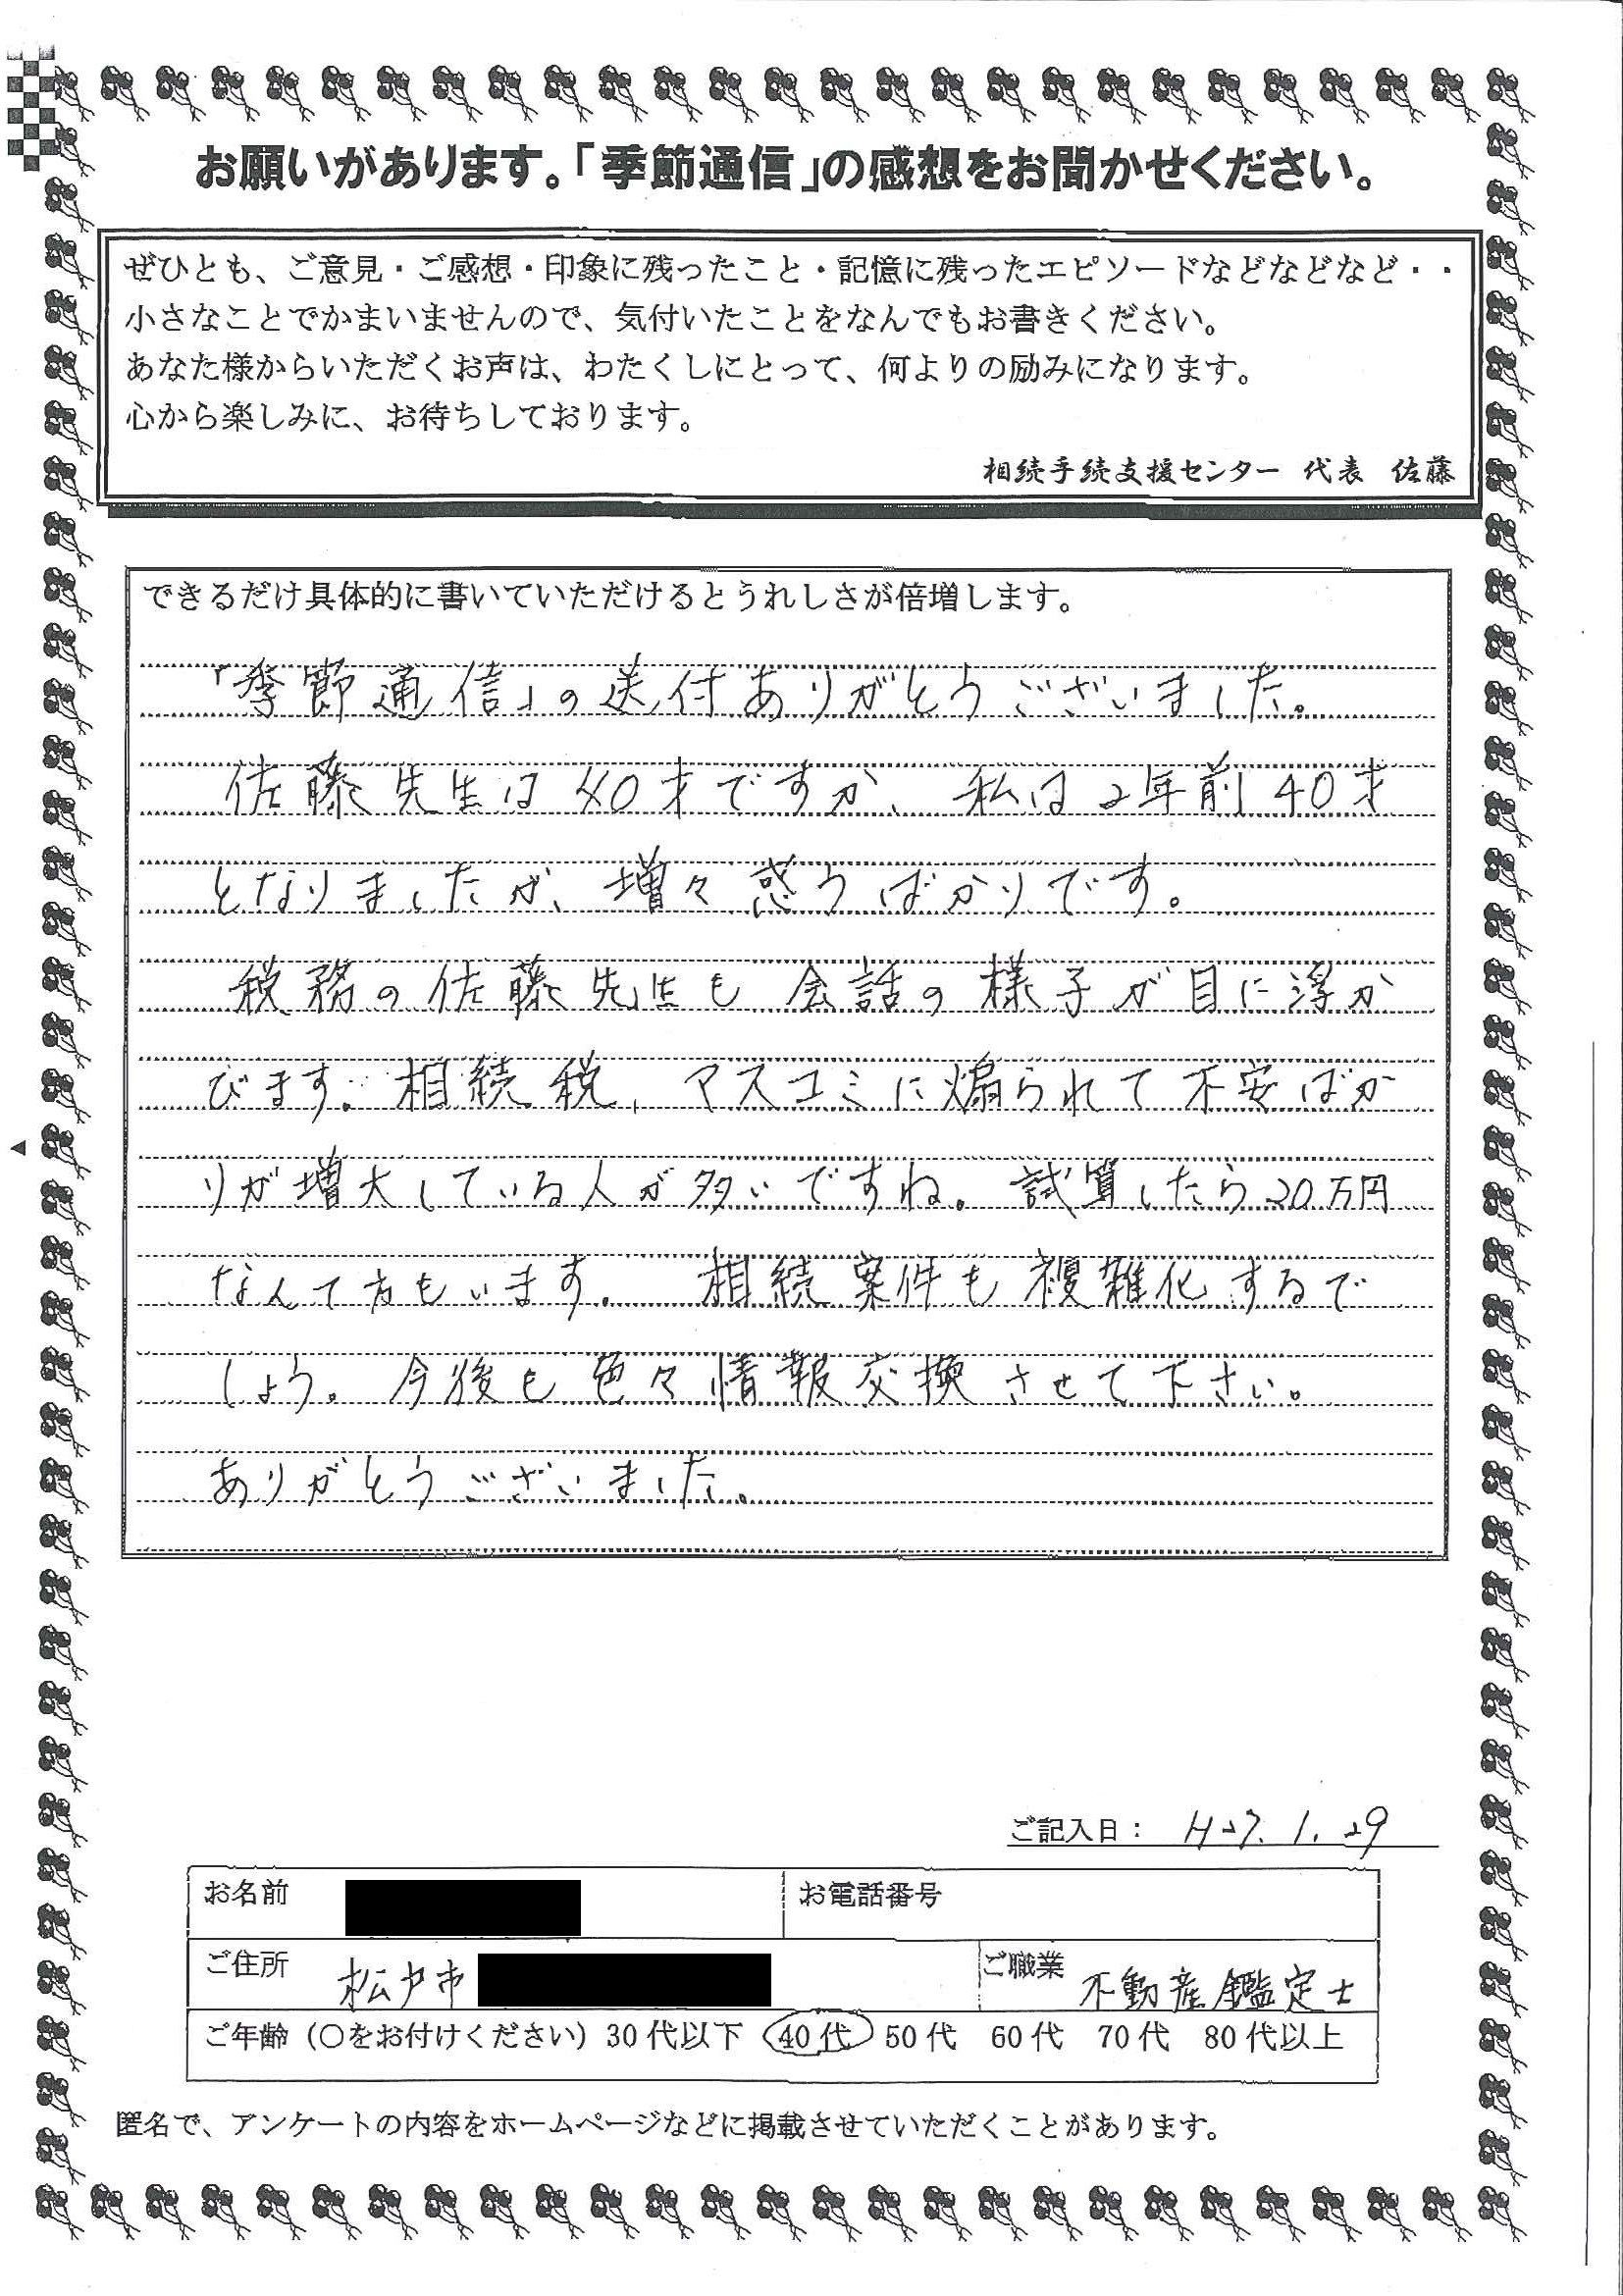 お願いがあります。「季節通信」の感想をお聞かせください。
ぜひとも、ご意見・ご感想・印象に残ったこと・記憶に残ったエピソードなどなどなど・・
小さなことでかまいませんので、気付いたことをなんでもお書きください。
あなた様からいただくお声は、わたくしにとって、何よりの励みになります。
心から楽しみに、お待ちしております。
相続手続支援センター 代表 佐藤
できるだけ具体的に書いていただけるとうれしさが倍増します。
「季節通信」の送付ありがとうございました。
佐藤先生は40才ですか、私は2年前40才
となりましたが、増々惑うばかりです。
税務の佐藤先生も会話の様子が目に浮か
びます。相続税、マスコミに煽られて不安ばか
りが増大している人が多いですね。試算したら20万円
なんて方もいます。相続案件も複雑化するで
しょう。今後も色々情報交換させて下さい。
ありがとうございました。
ご記入日: H27.1.29
お名前 お電話番号
ご住所 松戸市 ご職業 不動産鑑定士
ご年齢(○をお付けください)30代以下 40代 50代 60代 70代 80代以上
匿名で、アンケートの内容をホームページなどに掲載させていただくことがあります。